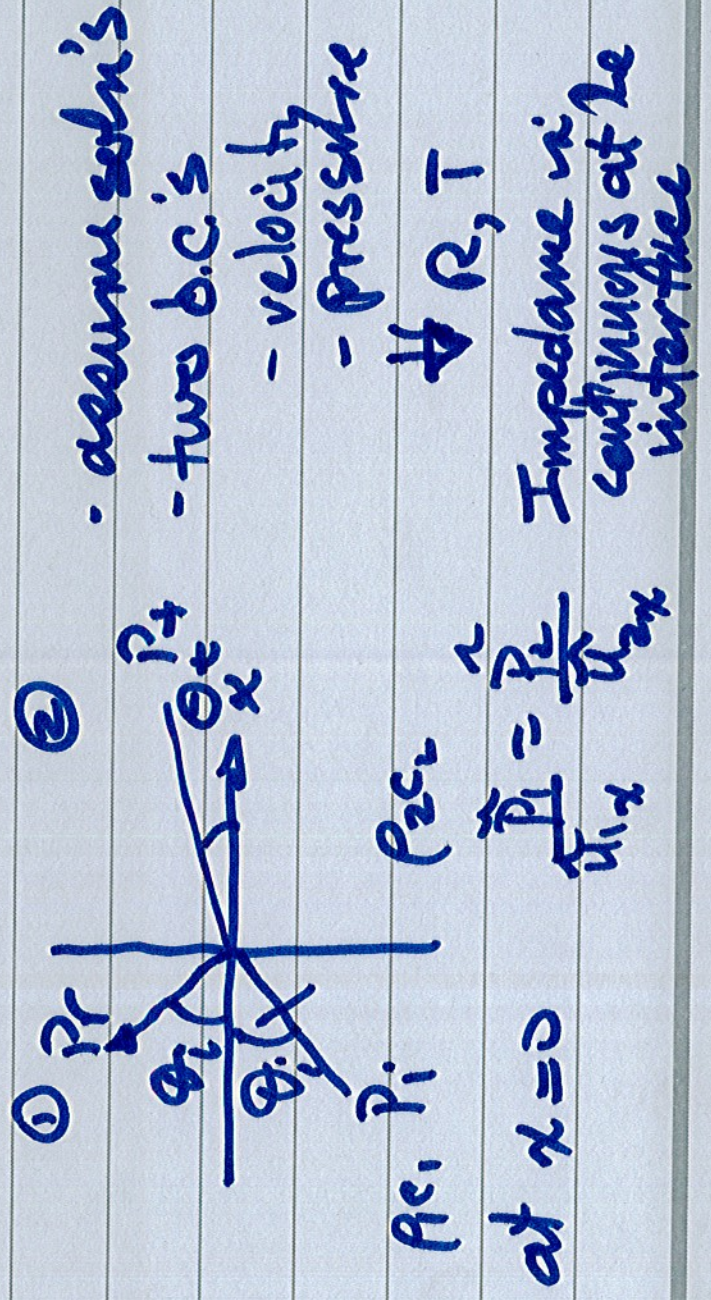 ① ②
Pr Pt
θi θt
θi x
Pi
ρ1c1 ρ2c2
at x=0 p̃1/ũ1x = p̃2/ũ2x
· assume soln's
- two b.c's
- velocity
- pressure
⇓ R, T
Impedance is
continuous at the
interface